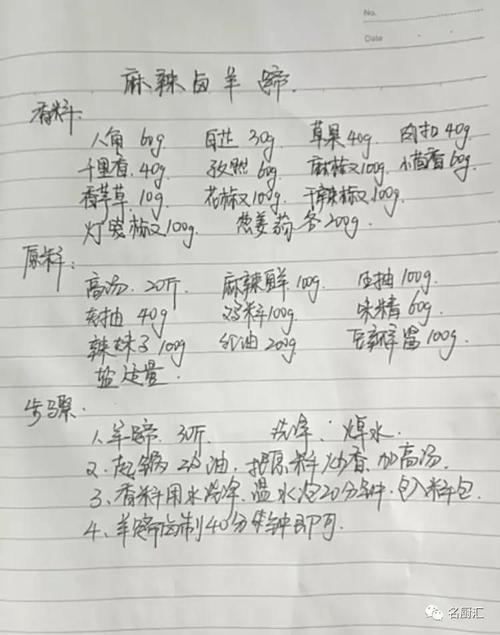 No.
Date
麻辣卤羊蹄.
香料:
八角 60g 白芷 30g 草果 40g 肉扣 40g
千里香 40g 孜然 60g 麻椒 100g 小茴香 60g
香茅草 10g 花椒 100g 干辣椒 100g
灯笼椒 100g 葱姜蒜各 200g
原料:
高汤 20斤 麻辣鲜 100g 生抽 100g
老抽 40g 鸡料 100g 味精 60g
辣妹子 100g 红油 200g 豆瓣酱 100g
盐适量
步骤:
1、羊蹄 30斤 洗净,焯水
2、起锅 油,把原料炒香,加高汤.
3、香料用水洗净,温水泡20分钟,包入料包.
4、羊蹄卤制40分钟即可.
名厨汇